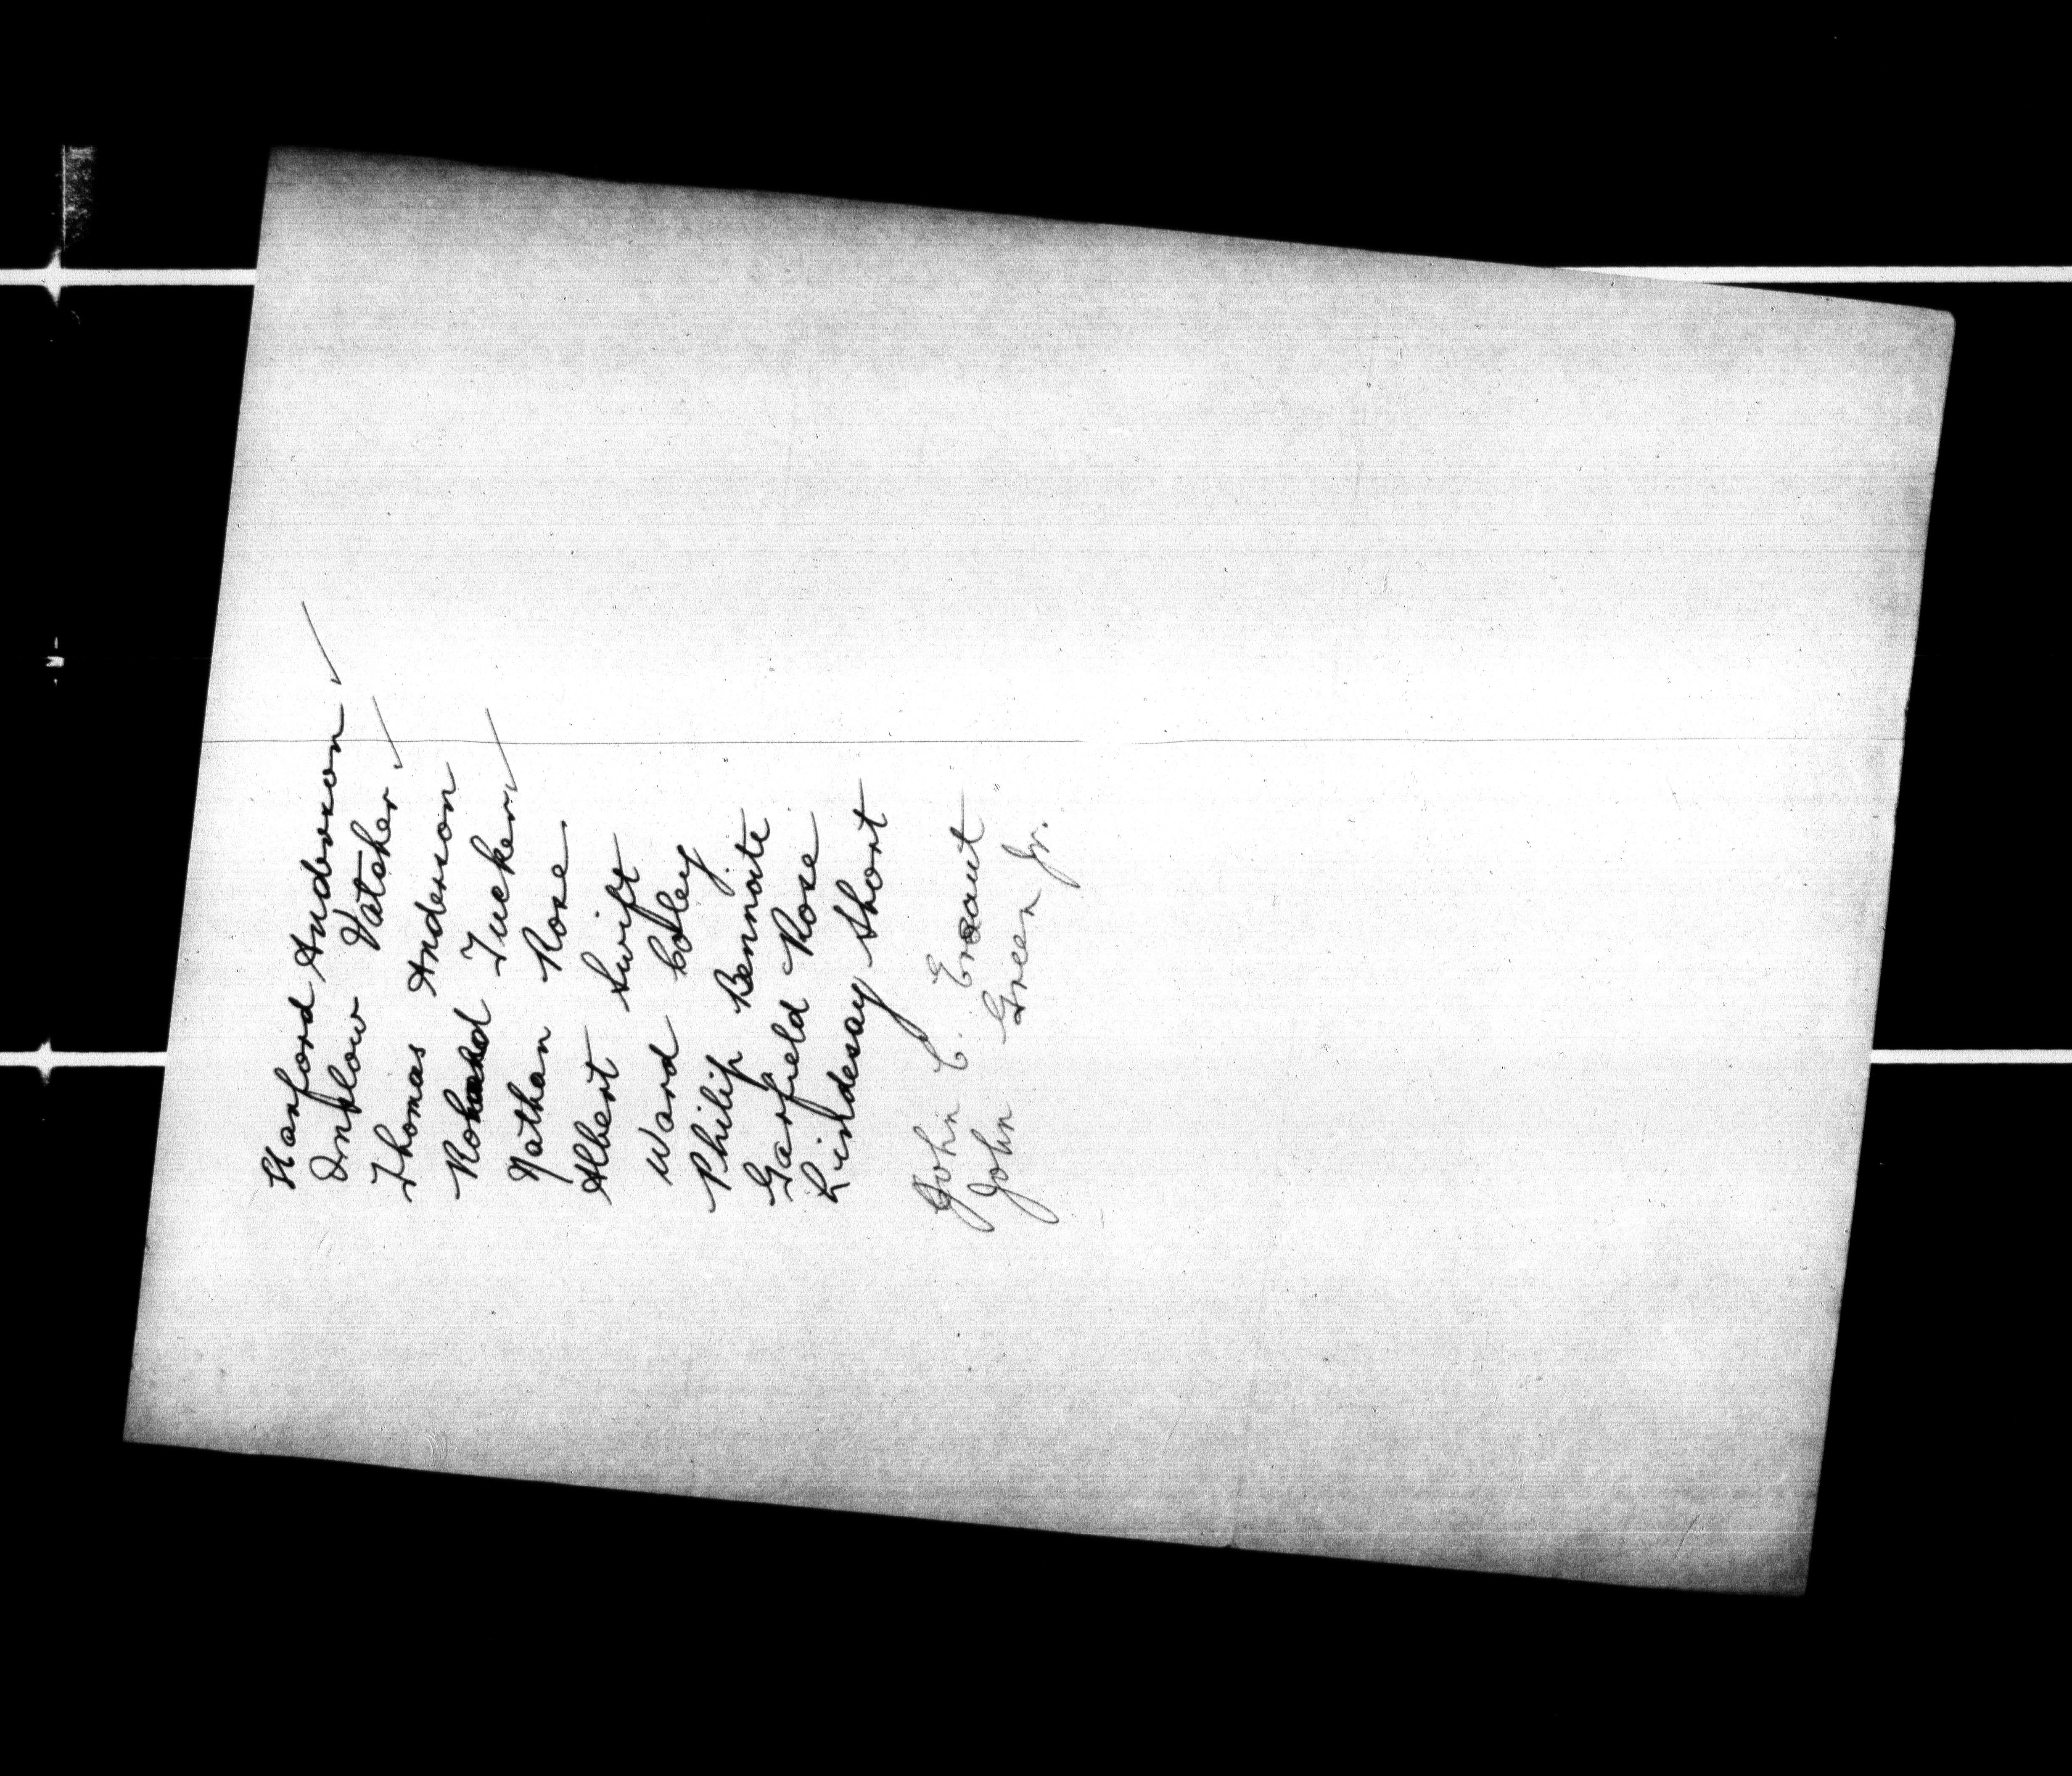 Hanford Anderson ✓
Onslow Vatcher ✓
Thomas Anderson
Tucker ✓
Nathan Rose
Albert Swift
Ward Coley
Philip Bennoite
Garfield Rose
Lindesay Short
John C. Ensaut
John Green Jr.